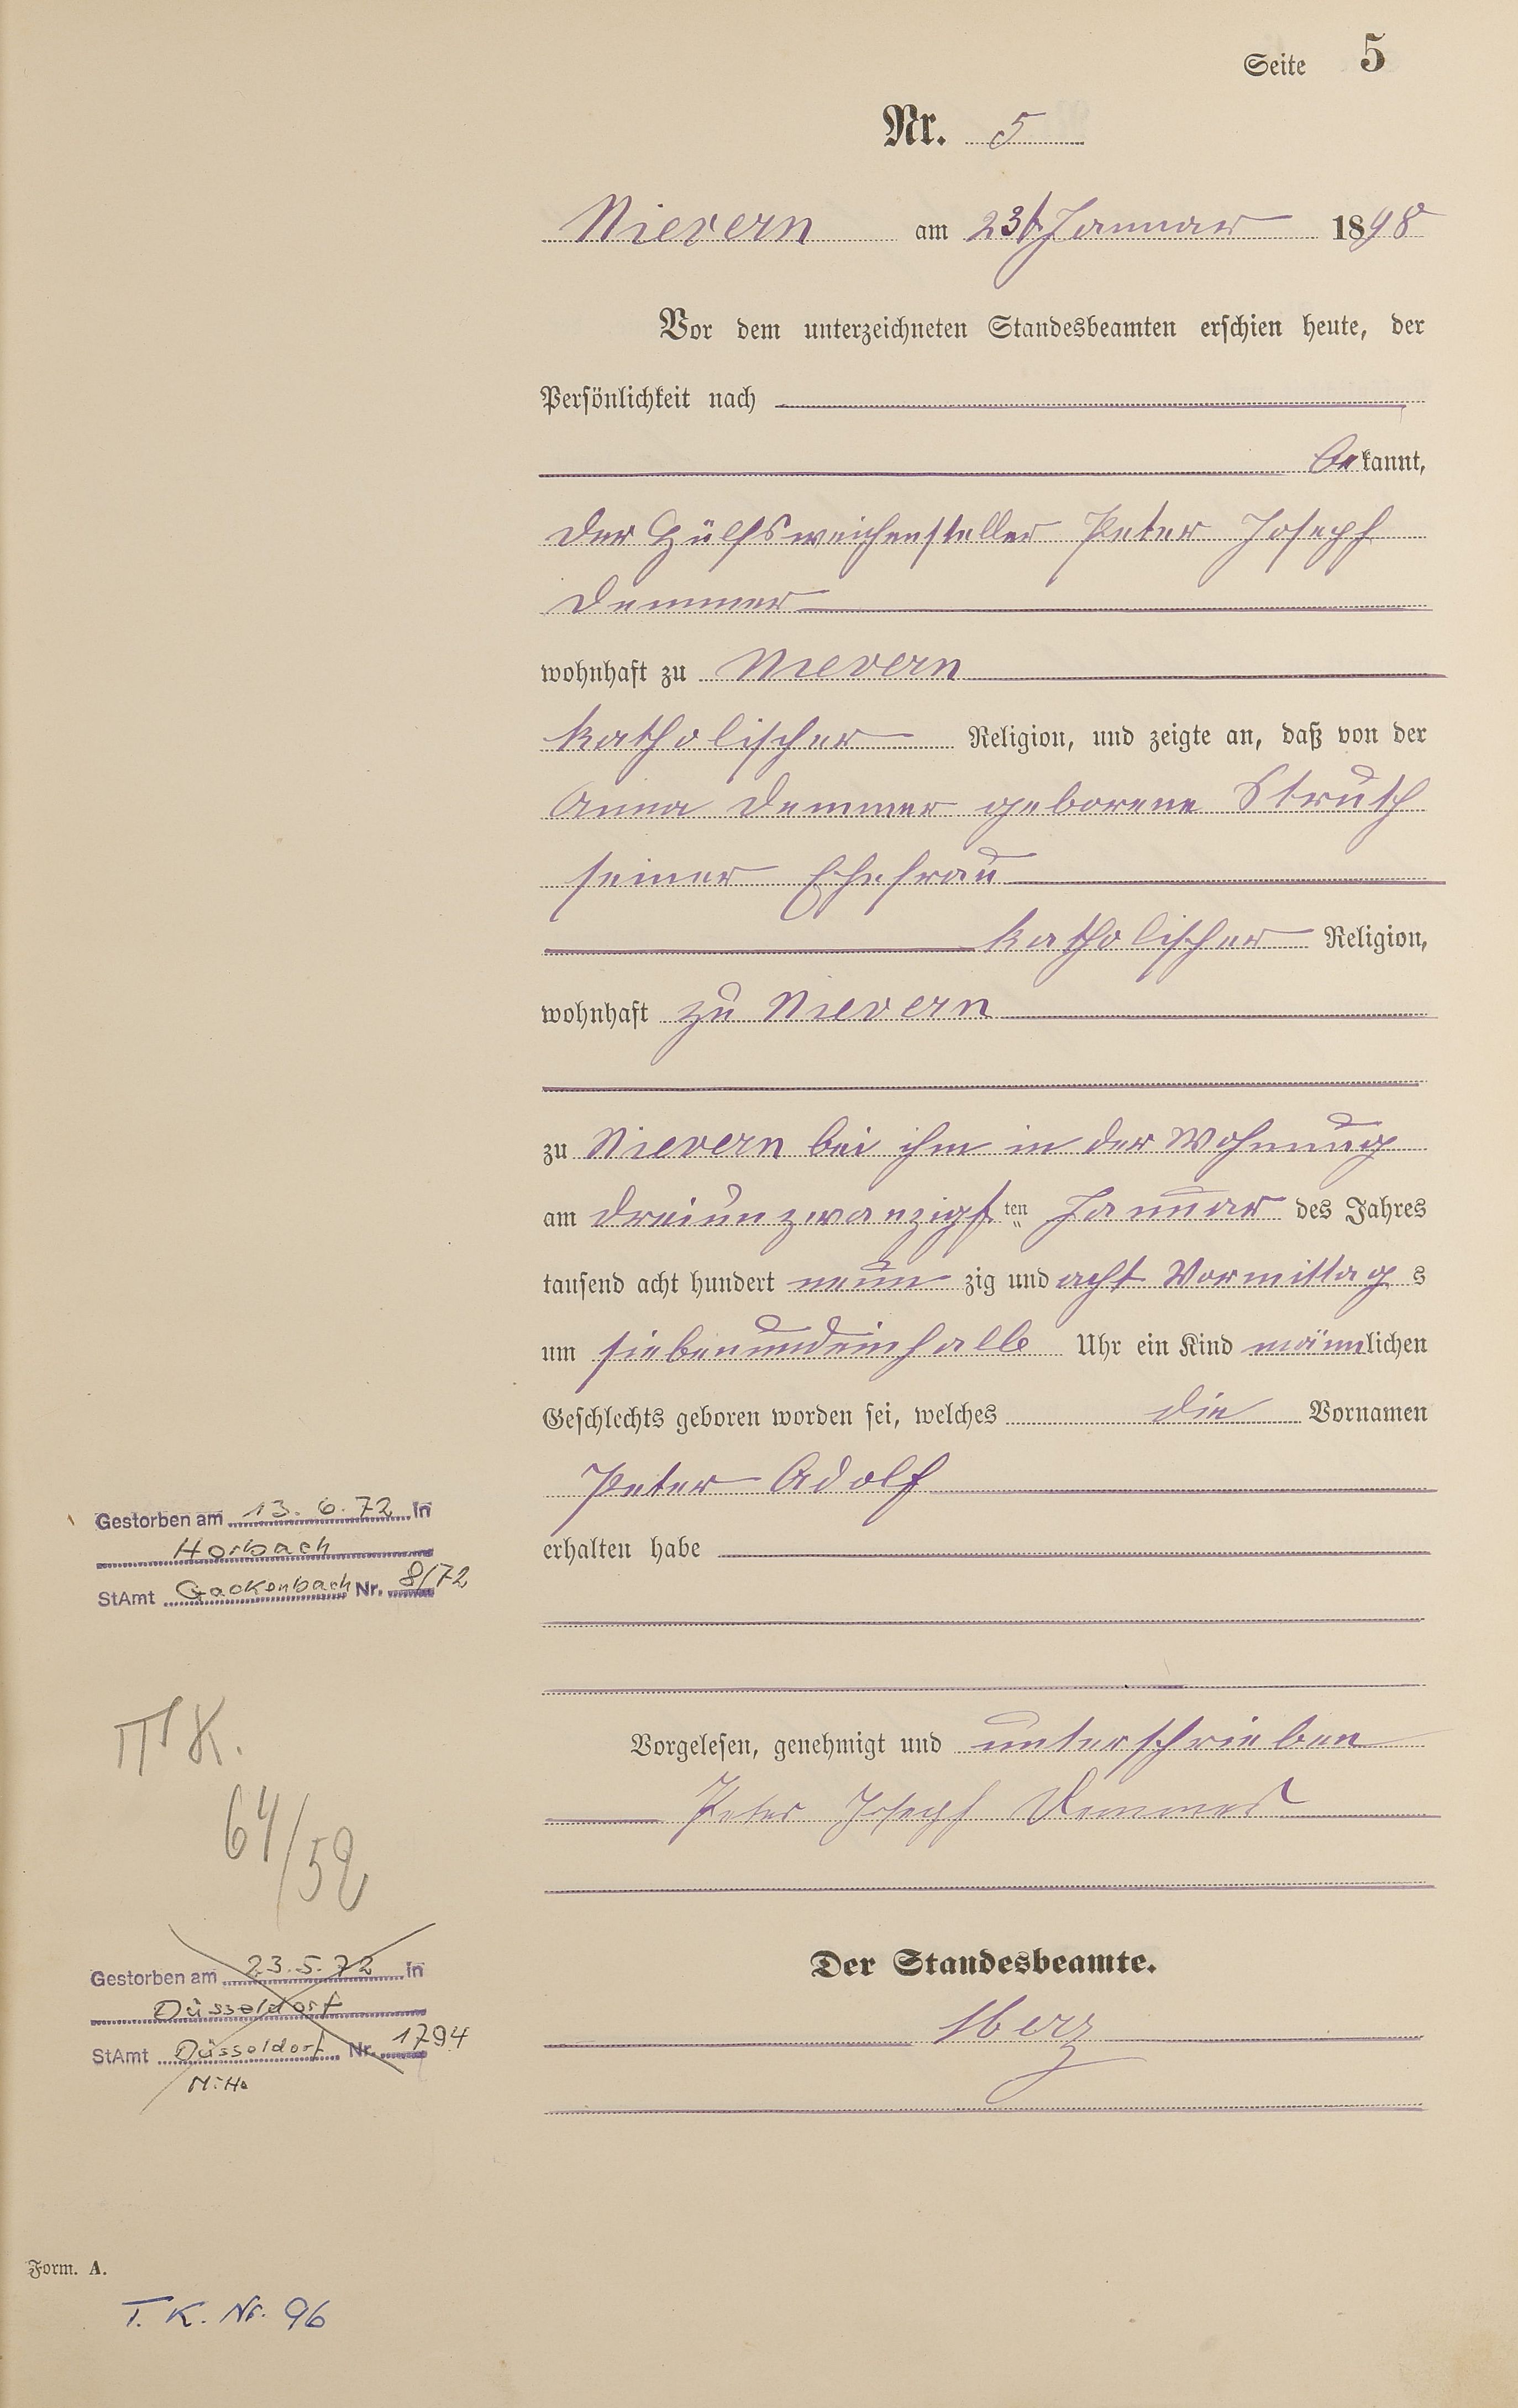 Seite 5
Nr. 5
Nievern am 23t Januar 1898
Vor dem unterzeichneten Standesbeamten erschien heute, der
Persönlichkeit nach
bekannt,
der Hülfsweichensteller Peter Joseph
Demmer
wohnhaft zu Nievern
katholischer Religion, und zeigte an, daß von der
Anna Demmer geborene Struth
seiner Ehefrau
katholischer Religion,
wohnhaft zu Nievern
zu Nievern bei ihm in der Wohnung
am dreiunzwanzigsten Januar des Jahres
tausend acht hundert neunzig und acht Vormittags
um siebenundeinhalb Uhr ein Kind männlichen
Geschlechts geboren worden sei, welches die Vornamen
Peter Adolf
erhalten habe
Vorgelesen, genehmigt und unterschrieben
Peter Joseph Demmer
Der Standesbeamte.
Gestorben am 13.6.72 in
Horbach
StAmt Gackenbach Nr. 8/72
K.
64/52
Gestorben am 23.5.72 in
Düsseldorf
StAmt Düsseldorf Nr. 1794
Mitte
Form. A.
T. K. Nr. 96